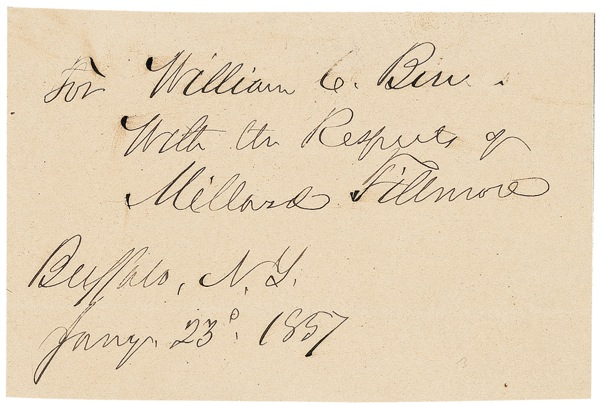 For William C. Birn.
With the Respects of
Millard Fillmore
Buffalo, N.Y.
Jany. 23d. 1857